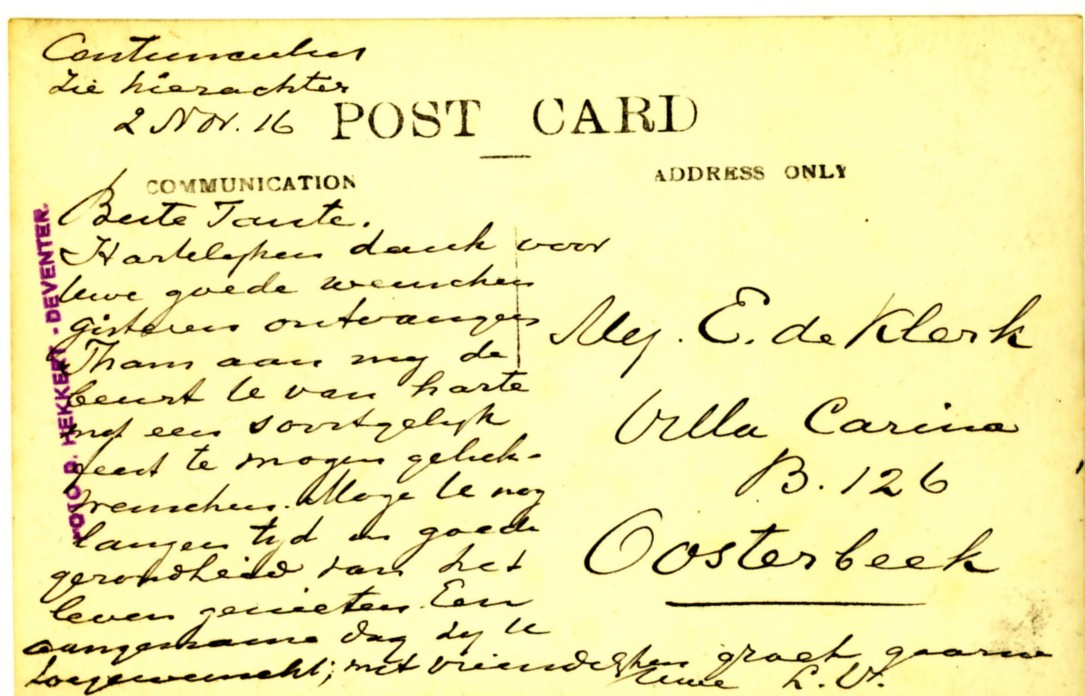 Centunculus
Zie hierachter
2 Nov. 16
POST CARD
COMMUNICATION
ADDRESS ONLY
FOTO D. HEKKERT - DEVENTER.
Beste Tante.
Hartelyken dank voor
Uwe goede wenschen
gisteren ontvangen
Thans aan my de
beurt U van harte
met een soortgelyk
feest te mogen geluk-
wenschen. Moge U nog
langen tyd in goede
gezondheid van het
leven genieten. Een
aangename dag zy U
toegewenscht; met vriendelyken groet gaarne
Uwe L. V.
Mej. E. de Klerk
Villa Carina
B. 126
Oosterbeek